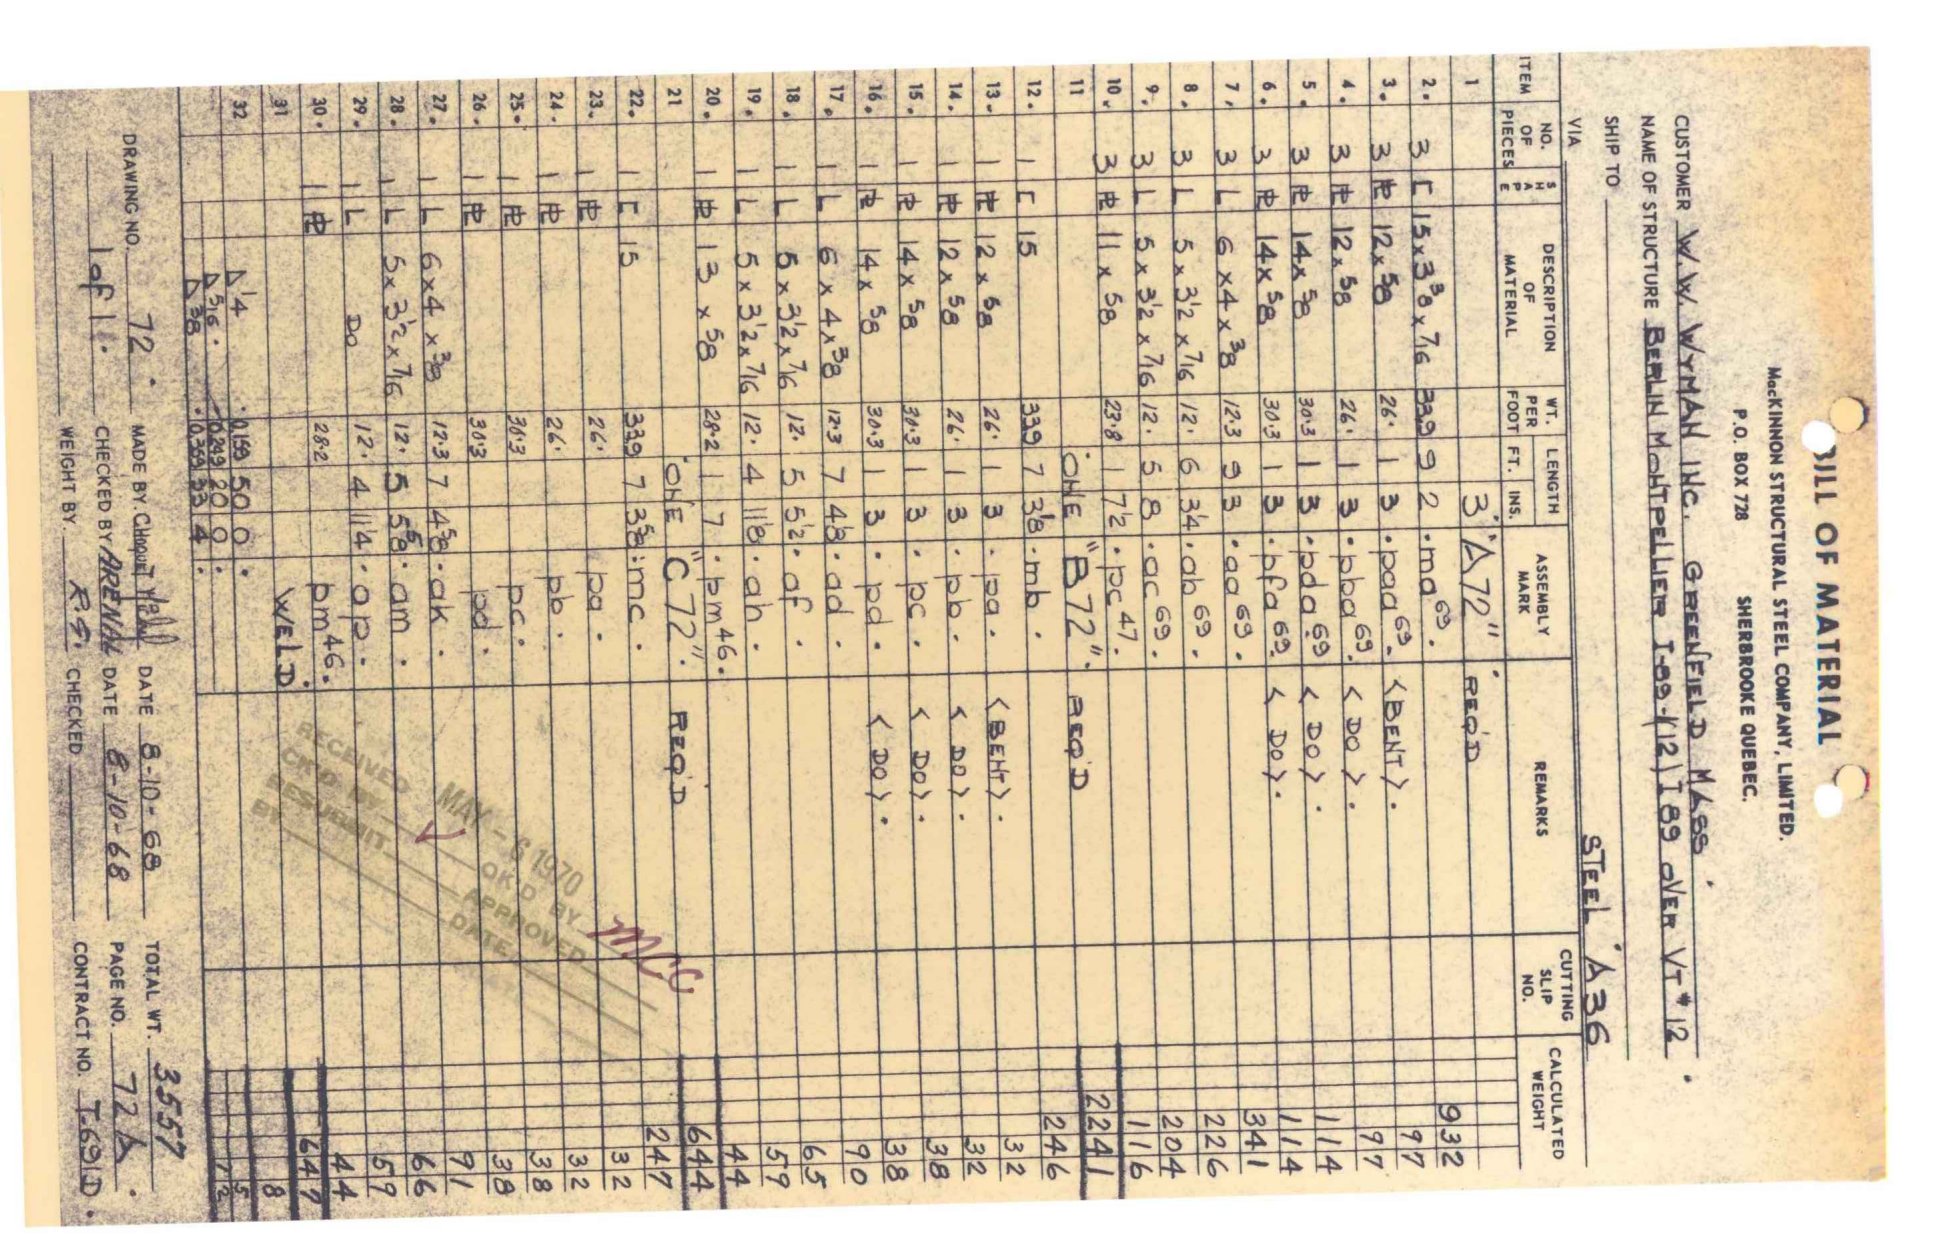 BILL OF MATERIAL
MacKINNON STRUCTURAL STEEL COMPANY, LIMITED.
P.O. BOX 728 SHERBROOKE QUEBEC.
CUSTOMER W.W. WYMAN INC. GREENFIELD MASS.
NAME OF STRUCTURE BERLIN MONTPELLIER I-89-1(12) I 89 OVER VT #12.
SHIP TO
VIA STEEL A36
ITEM NO. OF PIECES SHAPE DESCRIPTION OF MATERIAL WT. PER FOOT LENGTH FT. INS. ASSEMBLY MARK REMARKS CUTTING SLIP NO. CALCULATED WEIGHT
1 3 "A72" REQ'D
2. 3 [ 15 x 3 3/8 x 7/16 33.9 9 2 ma 69. 932
3. 3 PL 12 x 5/8 26. 1 3 paa 69. <BENT>. 97
4. 3 PL 12 x 5/8 26. 1 3 pba 69. <DO>. 97
5. 3 PL 14 x 5/8 30.3 1 3 pda 69 <DO>. 114
6. 3 PL 14 x 5/8 30.3 1 3 pfa 69. <DO>. 114
341
7. 3 L 6 x 4 x 3/8 12.3 9 3 aa 69. 226
8. 3 L 5 x 3 1/2 x 7/16 12. 6 3/4 ab 69. 204
9. 3 L 5 x 3 1/2 x 7/16 12. 5 8 ac 69. 116
10. 3 PL 11 x 5/8 23.8 1 7 1/2 pc 47. 2241
11 ONE "B72". REQ'D
12. 1 [ 15 33.9 7 3 1/8 mb. 246
13. 1 PL 12 x 5/8 26. 1 3 pa. <BENT>. 32
14. 1 PL 12 x 5/8 26. 1 3 pb. <DO>. 32
15. 1 PL 14 x 5/8 30.3 1 3 pc. <DO>. 38
16. 1 PL 14 x 5/8 30.3 1 3 pd. <DO>. 38
90
17. 1 L 6 x 4 x 3/8 12.3 7 4 1/8 ad. 65
18. 1 L 5 x 3 1/2 x 7/16 12. 5 5 1/2 af. 59
19. 1 L 5 x 3 1/2 x 7/16 12. 4 11/8 ah. 44
20. 1 PL 13 x 5/8 28.2 1 7 pm 46. 644
21 ONE "C72". REQ'D
22. 1 [ 15 33.9 7 3 5/8 mc. 247
23. 1 PL 26. pa. 32
24. 1 PL 26. pb. 32
25. 1 PL 30.3 pc. 38
26. 1 PL 30.3 pd. 38
91
27. 1 L 6 x 4 x 3/8 12.3 7 4 5/8 ak. 66
28. 1 L 5 x 3 1/2 x 7/16 12. 5 5 5/8 am. 59
29. 1 L DO 12. 4 11/4 ap. 44
30. 1 PL 28.2 pm 46. 647
31 WELD.
32 △ 1/4 .0.159 50 0. 8
△ 5/16. .0.249 20 0. 5
△ 3/8 .0.359 33 4. 12
RECEIVED MAY - 6 1970
CK'D BY OK'D BY MCC
RESUBMIT APPROVED
BY DATE
DRAWING NO. 72. MADE BY Choquet DATE 8-10-68 TOTAL WT. 3557
1 of 1. CHECKED BY ARENAL DATE 8-10-68 PAGE NO. 72A.
WEIGHT BY R.G. CHECKED CONTRACT NO. T-691D.